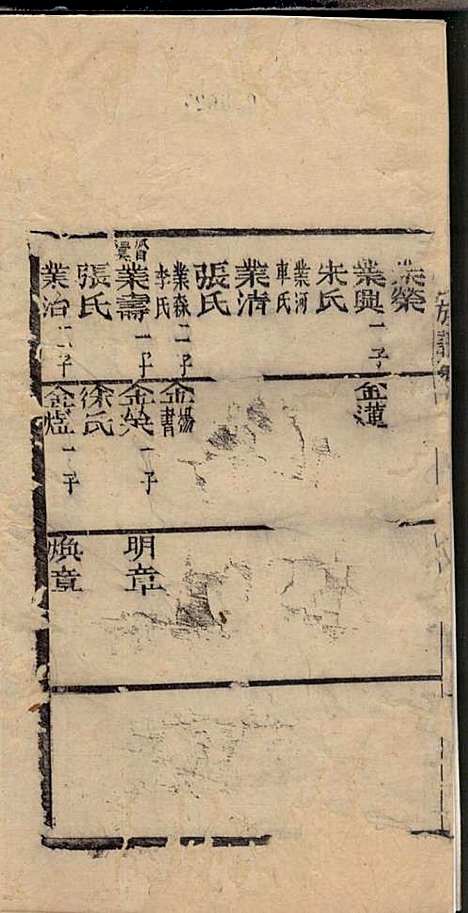 業榮
業興一子
朱氏
業河
車氏
業清
張氏
業森二子
李氏
業壽一子
張氏
業治二子
金蓮
金揚
金書
金英一子
徐氏
金煜一子
明章
煥章